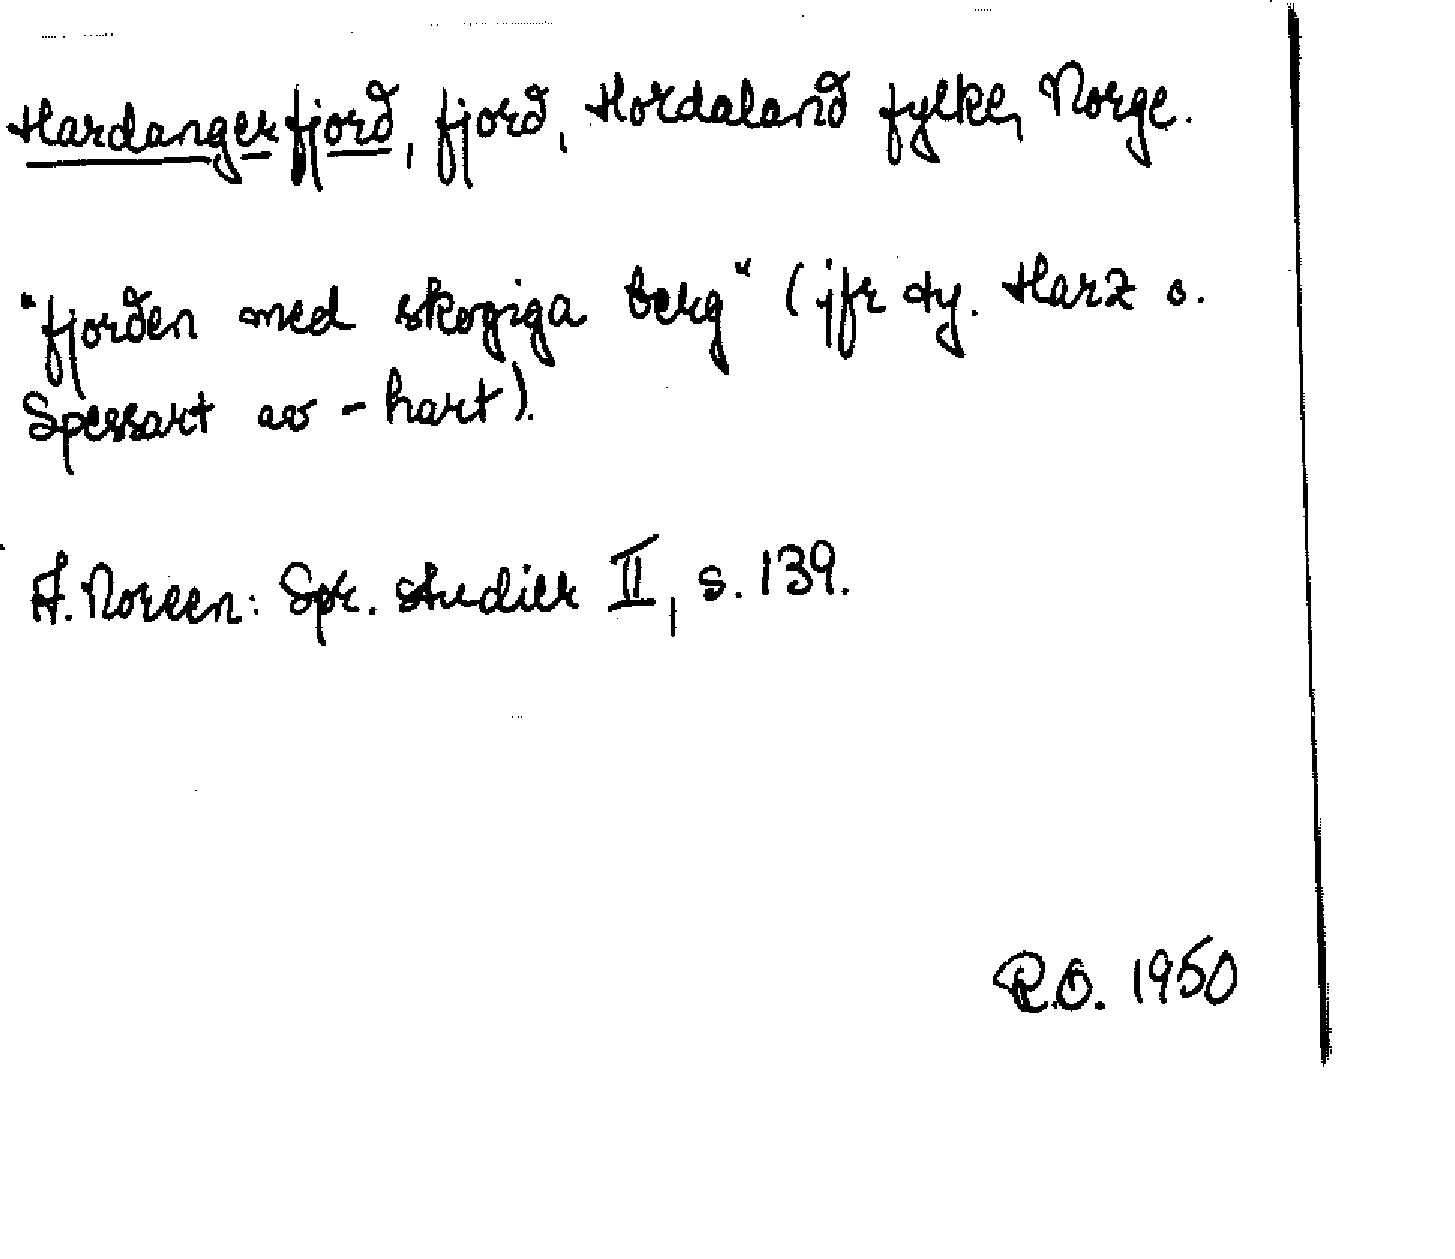 Hardangerfjord, fjord, Hordaland fylke, Norge.
"fjorden med skogiga berg" (jfr ty. Harz o.
Spessart av -hart).
A. Noreen: Spr. studier II, s. 139.
R.O. 1950